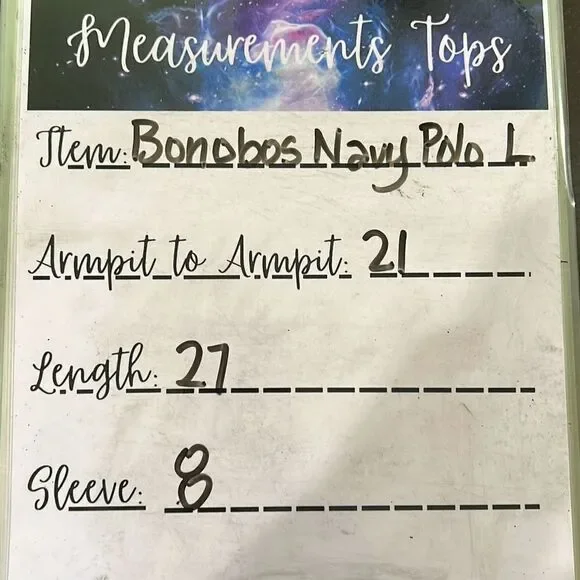 Measurements Tops
Item: Bonobos Navy Polo L
Armpit to Armpit: 21
Length: 27
Sleeve: 8